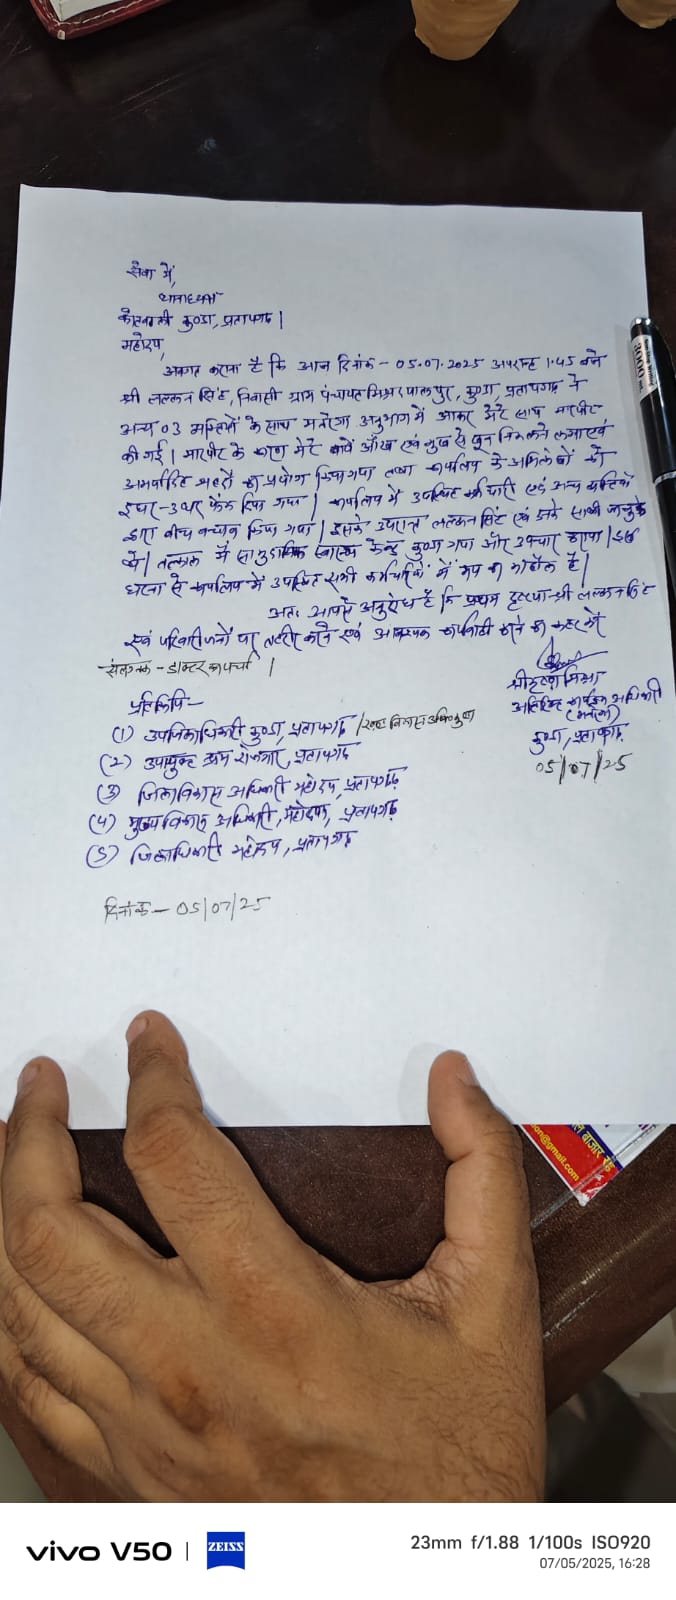 सेवा में,
थानाध्यक्ष
कोतवाली कुण्डा, प्रतापगढ़।
महोदय,
अवगत कराना है कि आज दिनांक - 05.07.2025 अपरान्ह 1.45 बजे
श्री लल्लन सिंह, निवासी ग्राम पंचायत मिश्रदयालपुर, कुण्डा, प्रतापगढ़ ने
अन्य 03 व्यक्तियों के साथ मनरेगा अनुभाग में आकर मेरे साथ मारपीट
की गई। मारपीट के कारण मेरे बायें आँख एवं मुख से खून निकलने लगा एवं
अमर्यादित शब्दों का प्रयोग किया गया तथा कार्यालय के अभिलेखों को
इधर-उधर फेंक दिया गया। कार्यालय में उपस्थित कर्मचारी एवं अन्य व्यक्तियों
द्वारा बीच बचाव किया गया। इसके उपरान्त लल्लन सिंह एवं उनके साथी जा चुके
थे। तत्काल में सामुदायिक स्वास्थ्य केन्द्र कुण्डा गया और उपचार कराया। इस
घटना से कार्यालय में उपस्थित सभी कर्मचारियों में भय का माहौल है।
अतः आपसे अनुरोध है कि प्रथम दृष्टया श्री लल्लन सिंह
एवं परिवारीजनों पर तहरीर करने एवं आवश्यक कार्यवाही करने का कष्ट करें
संलग्नक - डाक्टर का पर्चा।
श्रीकृष्ण मिश्रा
अतिरिक्त कार्यक्रम अधिकारी
(मनरेगा)
कुण्डा, प्रतापगढ़
05/07/25
प्रतिलिपि-
(1) उपजिलाधिकारी कुण्डा, प्रतापगढ़ / खण्ड विकास अधि० कुण्डा
(2) उपायुक्त श्रम रोजगार, प्रतापगढ़
(3) जिला विकास अधिकारी महोदय, प्रतापगढ़
(4) मुख्य विकास अधिकारी, महोदय, प्रतापगढ़
(5) जिलाधिकारी महोदय, प्रतापगढ़
दिनांक - 05/07/25
3000
on@gmail.com
बाजार रोड
vivo V50 | ZEISS
23mm f/1.88 1/100s ISO920
07/05/2025, 16:28